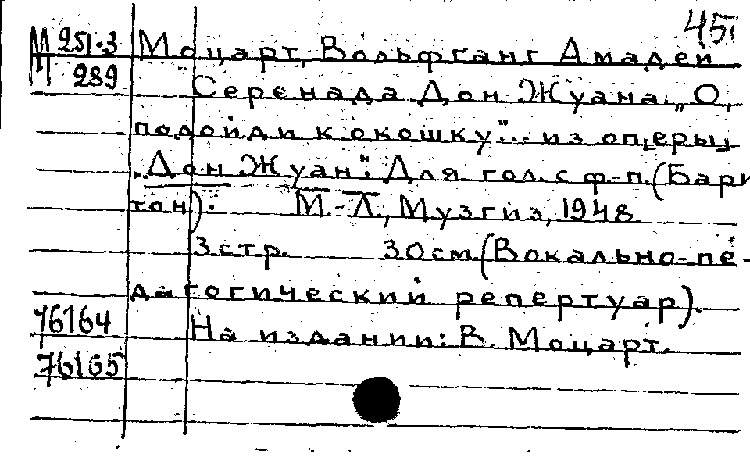 45
М 251-3 Моцарт, Вольфганг Амадей
М 289
Серенада Дон Жуана „О,
подойди к окошку"... из оперы
„Дон Жуан". Для гол. с ф-п. (Бари
тон).  М.-Л., Музгиз, 1948
3 стр.  30 см. (Вокально-пе-
дагогический репертуар).
76164 На издании: В. Моцарт.
76165